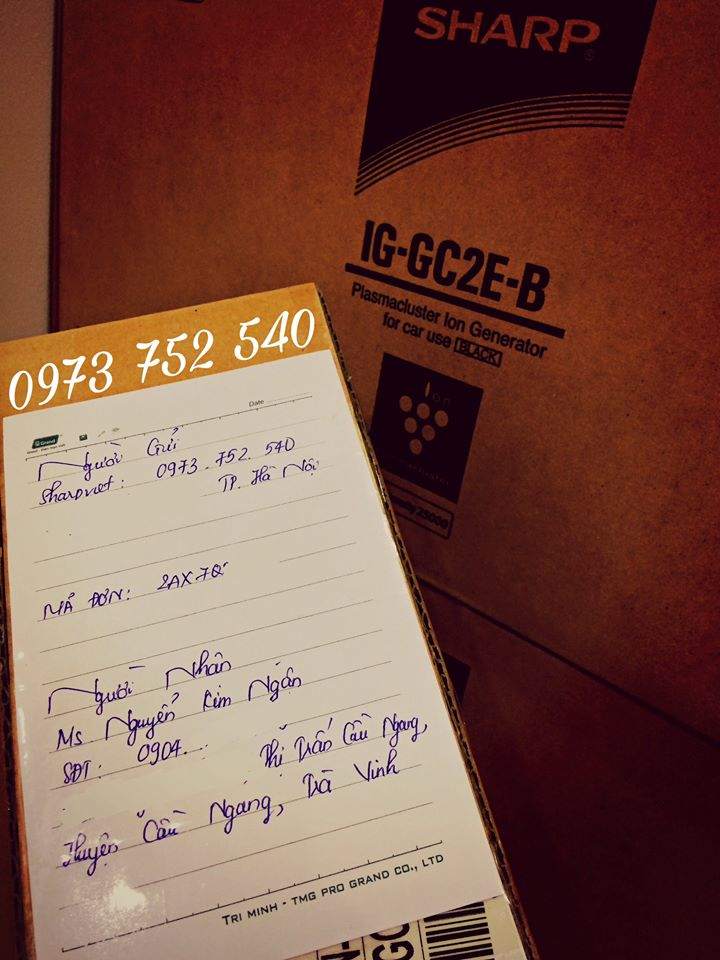 SHARP
IG-GC2E-B
Plasmacluster Ion Generator
for car use BLACK
Ion
25000
0973 752 540
Date
Grand
Người Gửi
Sharpviet: 0973.752.540
TP. Hà Nội
MÃ ĐƠN: 2AX7Q
Người Nhân
Ms Nguyễn Kim Ngân
SĐT: 0904...
Thị Trấn Cầu Ngang,
Huyện Cầu Ngang, Trà Vinh
TRI MINH - TMG PRO GRAND CO., LTD